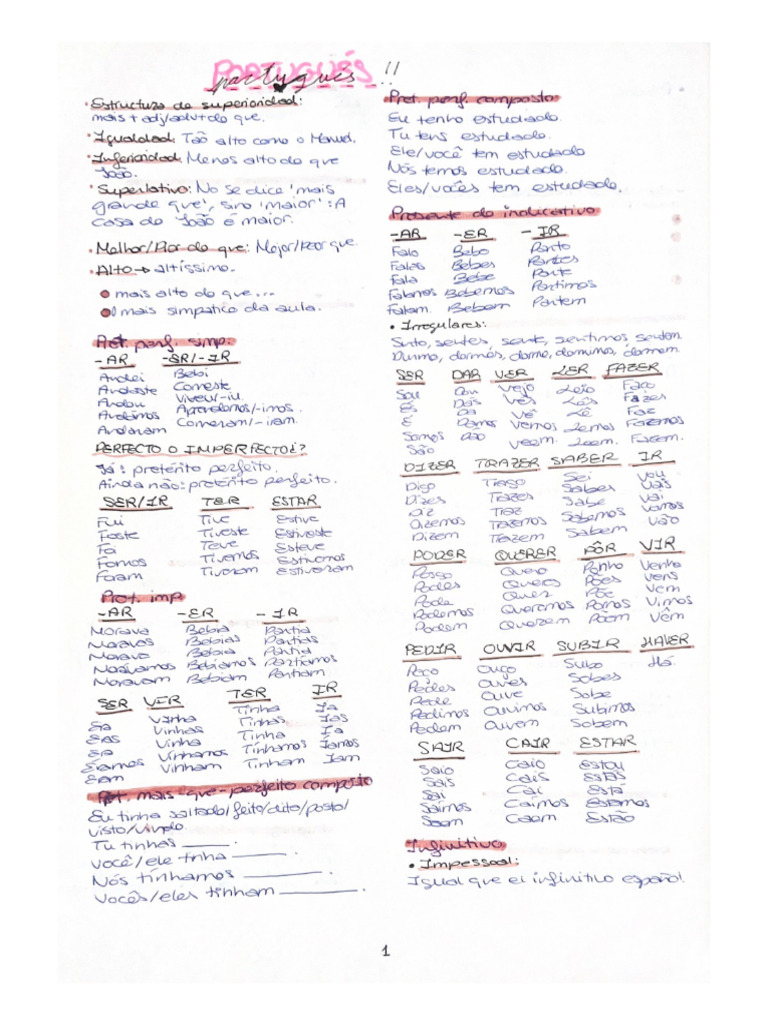 PORTUGUÉS
português !!
• Estructura de superioridad:
mais + adj/sdut+do que.
• Igualdad: Tão alto como o Manuel.
• Inferioridad: Menos alto do que
João.
• Superlativo: No se dice 'mais
grande que', sino 'maior': A
casa do João é maior.
• Melhor/Pior do que: Mejor/Peor que.
• Alto → altíssimo.
mais alto do que...
O mais simpatico da aula.
Pret. perf. simp.
-AR -ER/-IR
Andei Bebi
Andaste Comeste
Andou Viveu-iu.
Andámos Aprendemos/-imos.
Andaram Comeram/-iram.
¿PERFECTO O IMPERFECTO?
Já: pretérito perfeito.
Ainda não: pretérito perfeito.
SER/IR TER ESTAR
Fui Tive Estive
Foste Tiveste Estiveste
Fa Teve Esteve
Fomos Tivemos Estivemos
Foram Tiveram Estiveram
Pret. imp
-AR -ER -IR
Morava Bebia Partia
Moravas Bebias Partias
Morava Bebia Partia
Morávamos Bebíamos Partíamos
Moravam Bebiam Partiam
SER VIR TER IR
Era Vinha Tinha Ia
Eras Vinhas Tinhas Ias
Era Vinha Tinha Ia
Éramos Vínhamos Tínhamos Íamos
Eram Vinham Tinham Iam
Pret. mais-que-perfeito composto
Eu tinha saltado/feito/dito/posto/
visto/vindo
Tu tinhas ____.
Você/ele tinha ____.
Nós tínhamos ____.
Vocês/eles tinham ____.
Pret. perf. composto
Eu tenho estudado.
Tu tens estudado.
Ele/você tem estudado
Nós temos estudado.
Eles/vocês tem estudado.
Presente do indicativo
-AR -ER -IR
Falo Bebo Parto
Falas Bebes Partes
Fala Bebe Parte
Falamos Bebemos Partimos
Falam. Bebem Partem
• Irregulares:
Sinto, sentes, sente, sentimos, sentem.
Durmo, dormes, dorme, dormimos, dormem.
SER DAR VER LER FAZER
Sou Dou Vejo Leio Faço
És Dás Vês Lês Fazes
É Dá Vê Lê Faz
Somos Damos Vemos Lemos Fazemos
São Dão Veem. Leem. Fazem.
DIZER TRAZER SABER IR
Digo Trago Sei Vou
Dizes Trazes Sabes Vais
Diz Traz Sabe Vai
Dizemos Trazemos Sabemos Vamos
Dizem Trazem Sabem Vão
PODER QUERER PÔR VIR
Posso Quero Ponho Venho
Podes Queres Pões Vens
Pode Quer Põe Vem
Podemos Queremos Pomos Vimos
Podem Querem Poem Vêm
PEDIR OUVIR SUBIR HAVER
Peço Ouço Subo Há.
Pedes Ouves Sobes
Pede Ouve Sobe
Pedimos Ouvimos Subimos
Pedem Ouvem Sobem
SAIR CAIR ESTAR
Saio Caio Estou
Sais Cais Estás
Sai Cai Está
Saímos Caímos Estamos
Saem Caem Estão
Infinitivo
• Impessoal:
Igual que el infinitivo español.
1